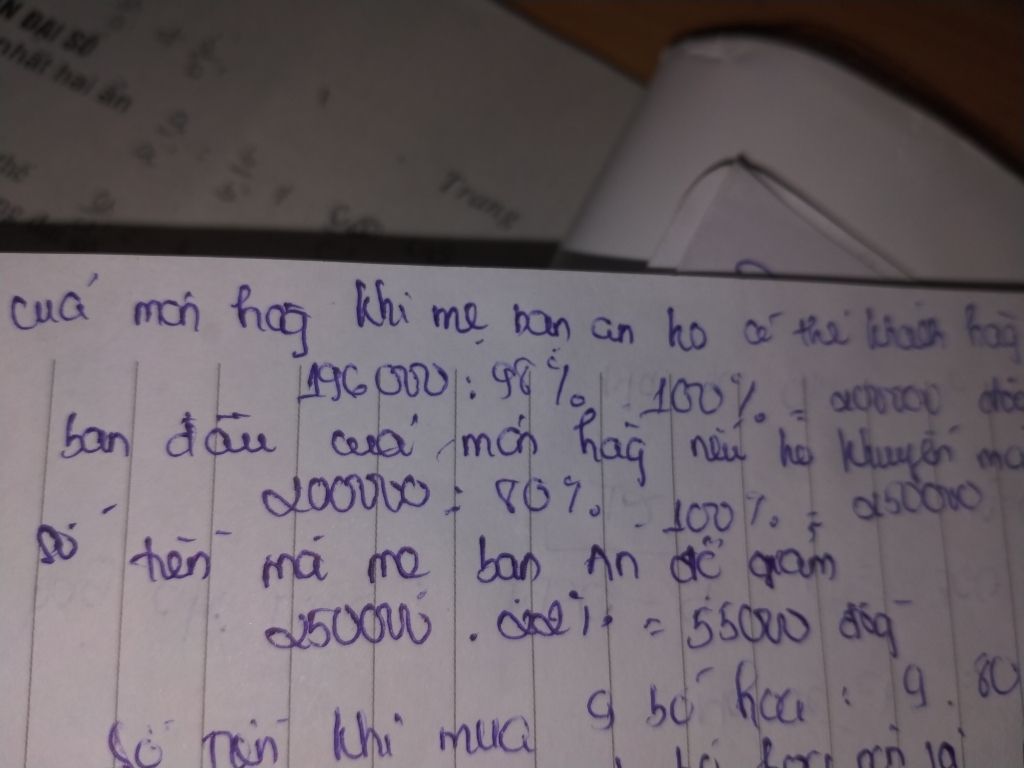 N ĐẠI SỐ
nhất hai ẩn
Trang
cuả món hag khi mẹ bạn an ko có thẻ khách hag
196000 : 98% . 100% = 200000 đồg
ban đầu cuả món hag nếu ko khuyến
200000 : 80% . 100% = 250000
số tiền mà mẹ bạn An đc giảm
250000 . = 55000 đồg
số tiền khi mua 9 bó hoa : 9 . 80